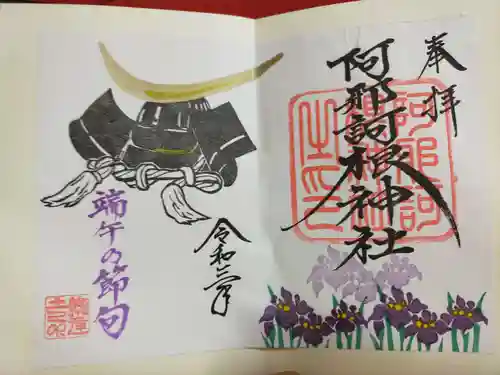 奉拝
阿邪訶根神社
阿邪訶
根神社
之印
令和三年
端午の節句